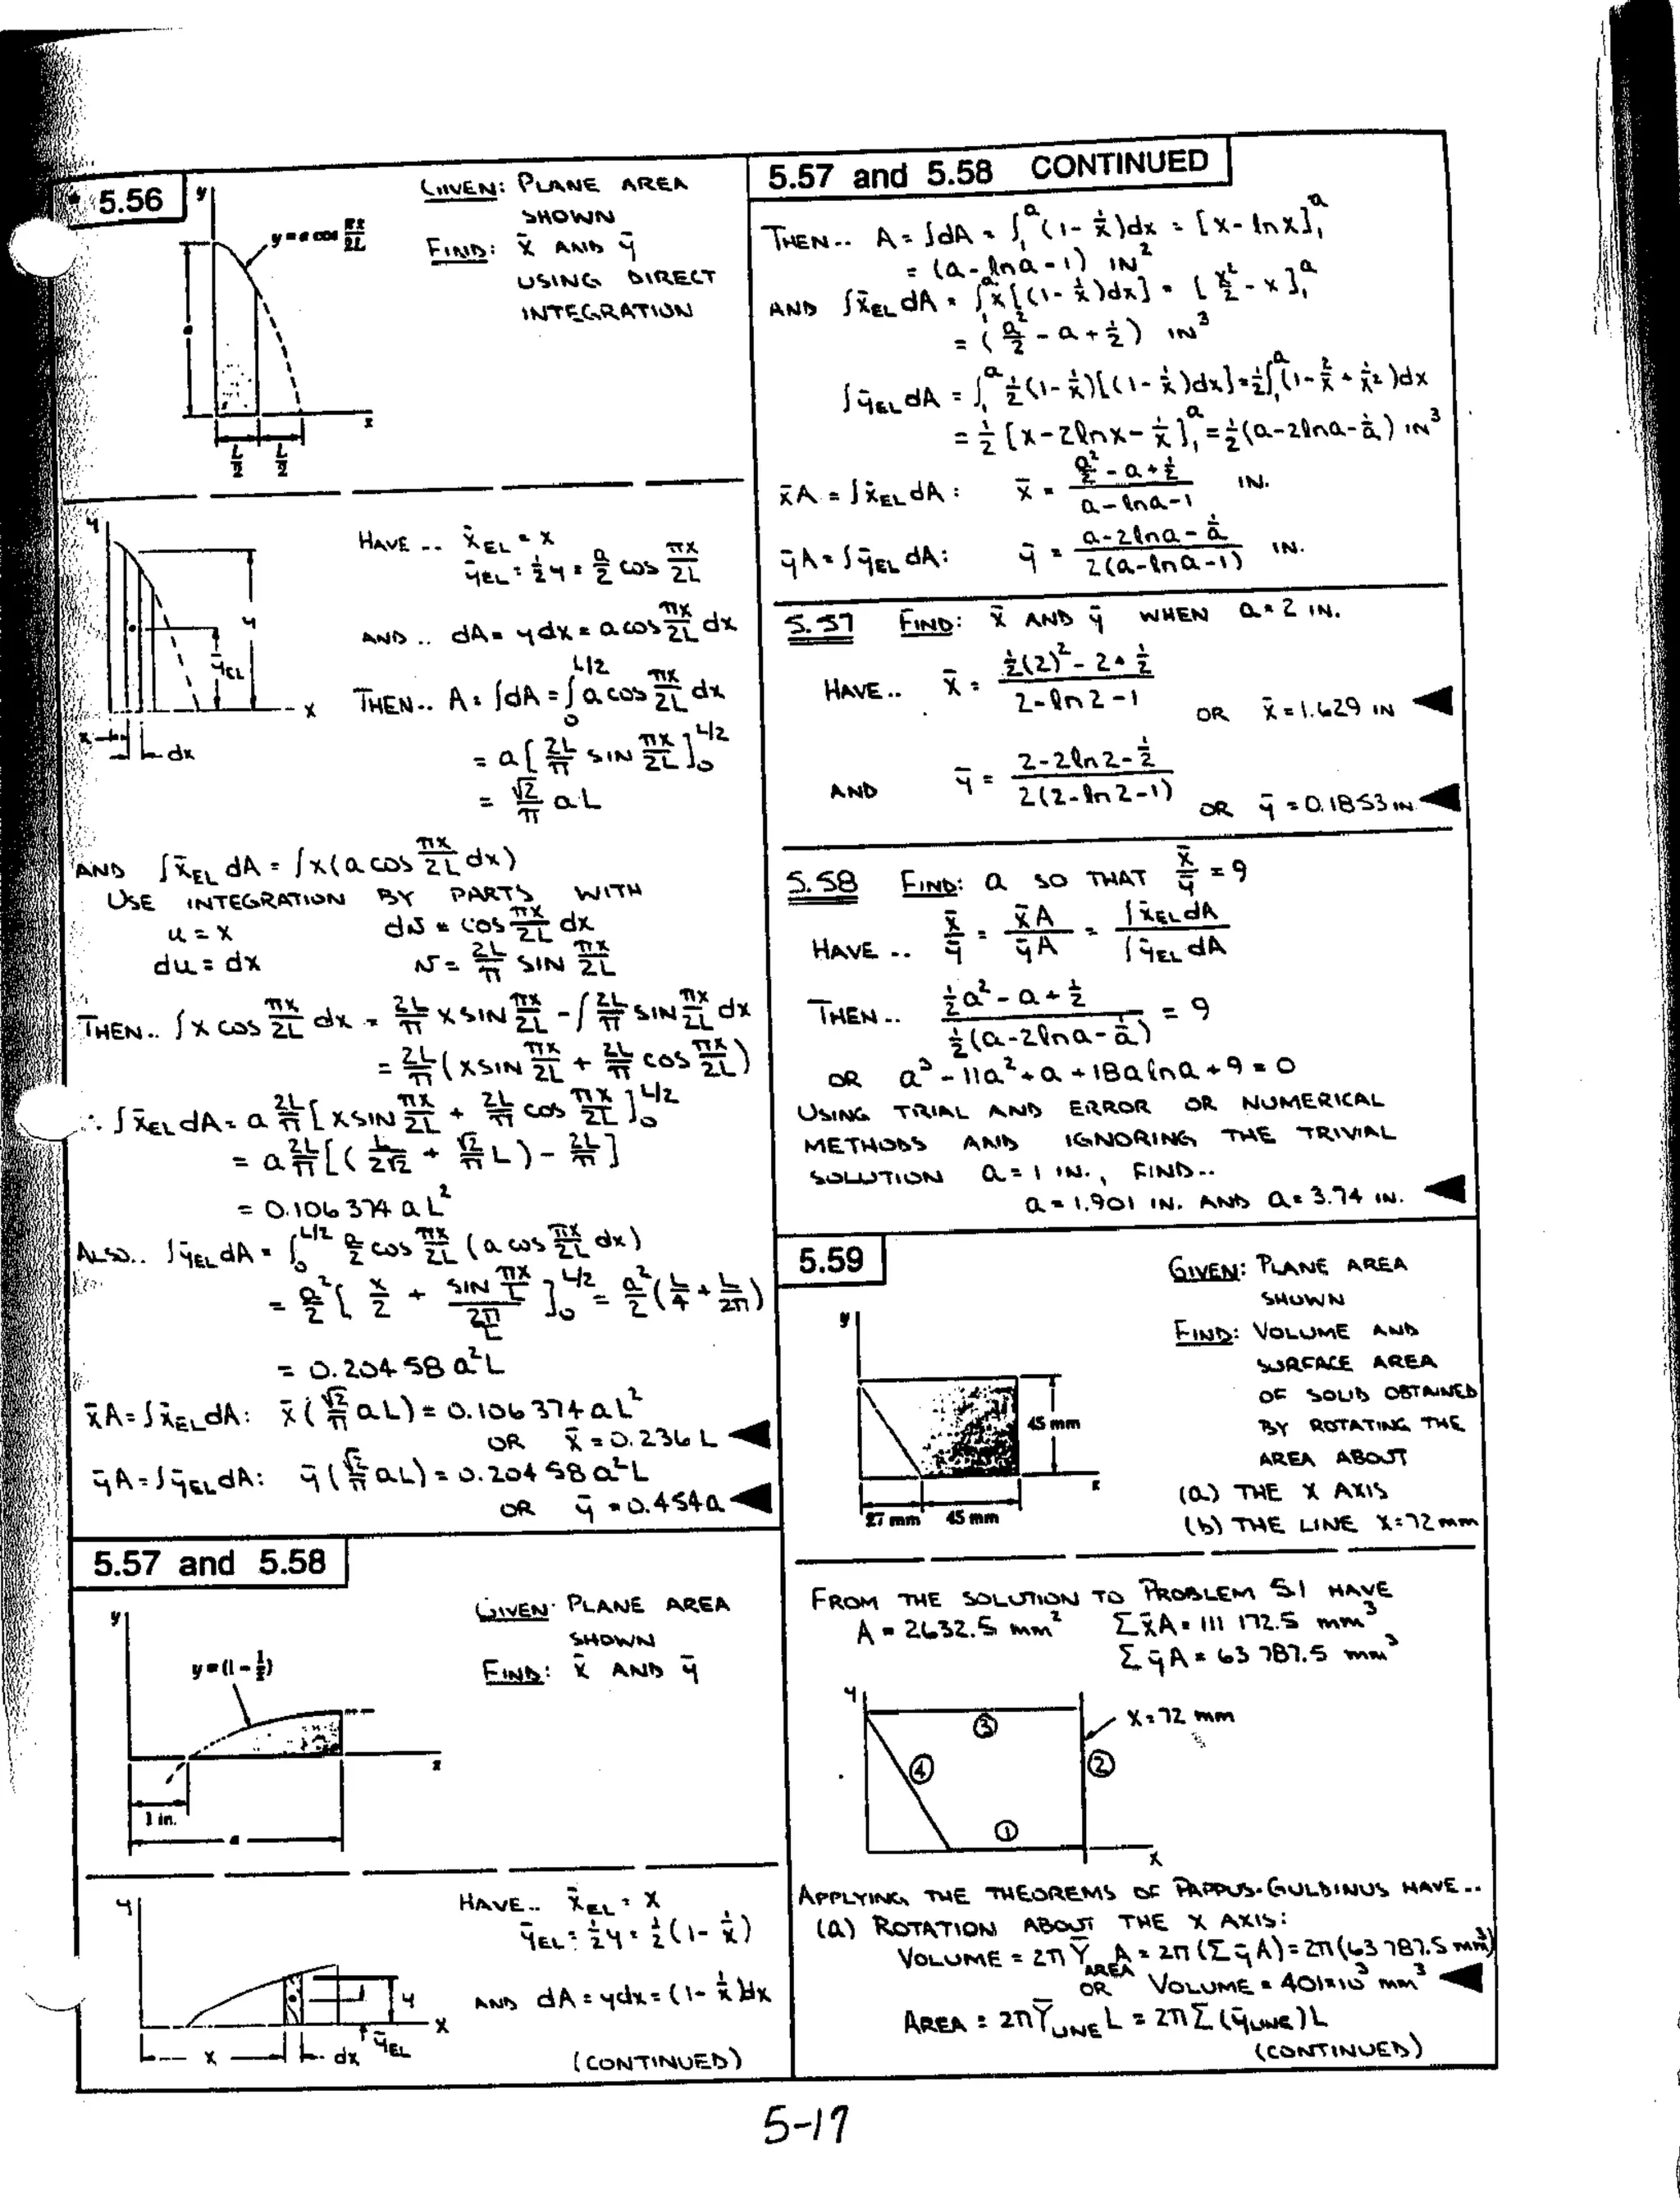 * 5.56
y
y = a cos πx/2L
a
x
L/2 L/2
GIVEN: PLANE AREA
SHOWN
FIND: x̄ AND ȳ
USING DIRECT
INTEGRATION
y
y
ȳEL
x
x
dx
HAVE -- x̄EL = x
ȳEL = 1/2 y = a/2 cos πx/2L
AND .. dA = y dx = a cos πx/2L dx
THEN.. A = ∫dA = ∫₀^L/2 a cos πx/2L dx
= a[2L/π sin πx/2L]₀^L/2
= √2/π aL
AND ∫x̄EL dA = ∫x(a cos πx/2L dx)
USE INTEGRATION BY PARTS WITH
u = x dv = cos πx/2L dx
du = dx v = 2L/π sin πx/2L
THEN.. ∫x cos πx/2L dx = 2L/π x sin πx/2L - ∫2L/π sin πx/2L dx
= 2L/π (x sin πx/2L + 2L/π cos πx/2L)
∴ ∫x̄EL dA = a 2L/π [x sin πx/2L + 2L/π cos πx/2L]₀^L/2
= a 2L/π [(L/2√2 + √2/π L) - 2L/π]
= 0.106374 aL²
ALSO.. ∫ȳEL dA = ∫₀^L/2 a/2 cos πx/2L (a cos πx/2L dx)
= a²/2 [x/2 + sin πx/L / 2π/L]₀^L/2 = a²/2 (L/4 + L/2π)
= 0.20458 a²L
x̄A = ∫x̄EL dA: x̄(√2/π aL) = 0.106374 aL²
OR x̄ = 0.236 L
ȳA = ∫ȳEL dA: ȳ(√2/π aL) = 0.20458 a²L
OR ȳ = 0.454a
5.57 and 5.58
y
y = (1 - 1/x)
x
1 in.
a
GIVEN: PLANE AREA
SHOWN
FIND: x̄ AND ȳ
y
y
x
x
dx
ȳEL
HAVE.. x̄EL = x
ȳEL = 1/2 y = 1/2 (1 - 1/x)
AND dA = ydx = (1 - 1/x)dx
(CONTINUED)
5.57 and 5.58 CONTINUED
THEN.. A = ∫dA = ∫₁^a (1 - 1/x)dx = [x - ln x]₁^a
= (a - ln a - 1) IN²
AND ∫x̄EL dA = ∫₁^a x[(1 - 1/x)dx] = [x²/2 - x]₁^a
= (a²/2 - a + 1/2) IN³
∫ȳEL dA = ∫₁^a 1/2 (1 - 1/x)[(1 - 1/x)dx] = 1/2 ∫₁^a (1 - 2/x + 1/x²)dx
= 1/2 [x - 2ln x - 1/x]₁^a = 1/2 (a - 2ln a - 1/a) IN³
x̄A = ∫x̄EL dA: x̄ = (a²/2 - a + 1/2)/(a - ln a - 1) IN.
ȳA = ∫ȳEL dA: ȳ = (a - 2ln a - 1/a)/2(a - ln a - 1) IN.
5.57 FIND: x̄ AND ȳ WHEN a = 2 IN.
HAVE.. x̄ = (1/2(2)² - 2 + 1/2)/(2 - ln 2 - 1)
OR x̄ = 1.629 IN
AND ȳ = (2 - 2ln 2 - 1/2)/2(2 - ln 2 - 1)
OR ȳ = 0.1853 IN.
5.58 FIND: a SO THAT x̄/ȳ = 9
HAVE .. x̄/ȳ = x̄A/ȳA = ∫x̄EL dA/∫ȳEL dA
THEN.. (1/2 a² - a + 1/2)/(1/2 (a - 2ln a - 1/a)) = 9
OR a³ - 11a² + a + 18a ln a + 9 = 0
USING TRIAL AND ERROR OR NUMERICAL
METHODS AND IGNORING THE TRIVIAL
SOLUTION a = 1 IN., FIND..
a = 1.901 IN. AND a = 3.74 IN.
5.59
y
45 mm
x
27 mm 45 mm
GIVEN: PLANE AREA
SHOWN
FIND: VOLUME AND
SURFACE AREA
OF SOLID OBTAINED
BY ROTATING THE
AREA ABOUT
(a) THE X AXIS
(b) THE LINE X=72 mm
FROM THE SOLUTION TO PROBLEM 5.1 HAVE
A = 2632.5 mm² Σx̄A = 111 172.5 mm³
ΣȳA = 63 787.5 mm³
y
③
x = 72 mm
④
②
①
x
APPLYING THE THEOREMS OF PAPPUS-GULDINUS HAVE..
(a) ROTATION ABOUT THE X AXIS:
VOLUME = 2π Ȳ AREA A = 2π (ΣȳA) = 2π(63 787.5 mm³)
OR VOLUME = 401×10³ mm³
AREA = 2πȲLINE L = 2πΣ(ȳLINE)L
(CONTINUED)
5-17